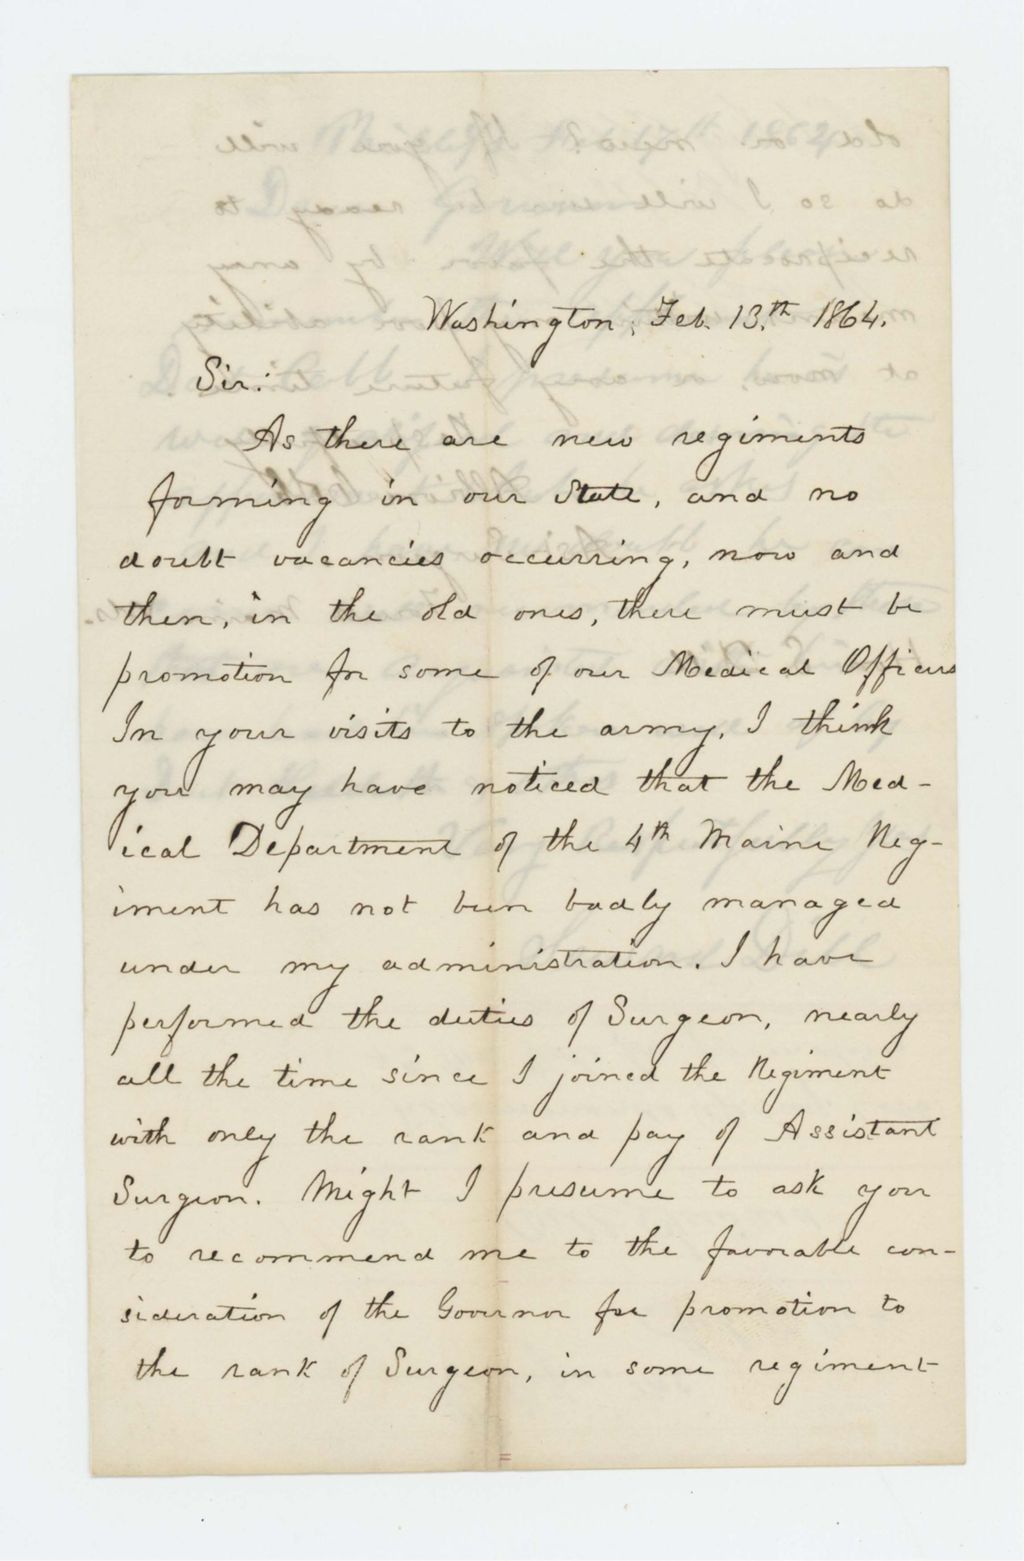 Washington, Feb. 13.th 1864.
Sir:
As there are new regiments
forming in our State, and no
doubt vacancies occurring, now and
then, in the old ones, there must be
promotion for some of our Medical Officers
In your visits to the army, I think
you may have noticed that the Med-
ical Department of the 4th Maine Reg-
iment has not been badly managed
under my administration. I have
performed the duties of Surgeon, nearly
all the time since I joined the Regiment
with only the rank and pay of Assistant
Surgeon. Might I presume to ask you
to recommend me to the favorable con-
sideration of the Governor for promotion to
the rank of Surgeon, in some regiment